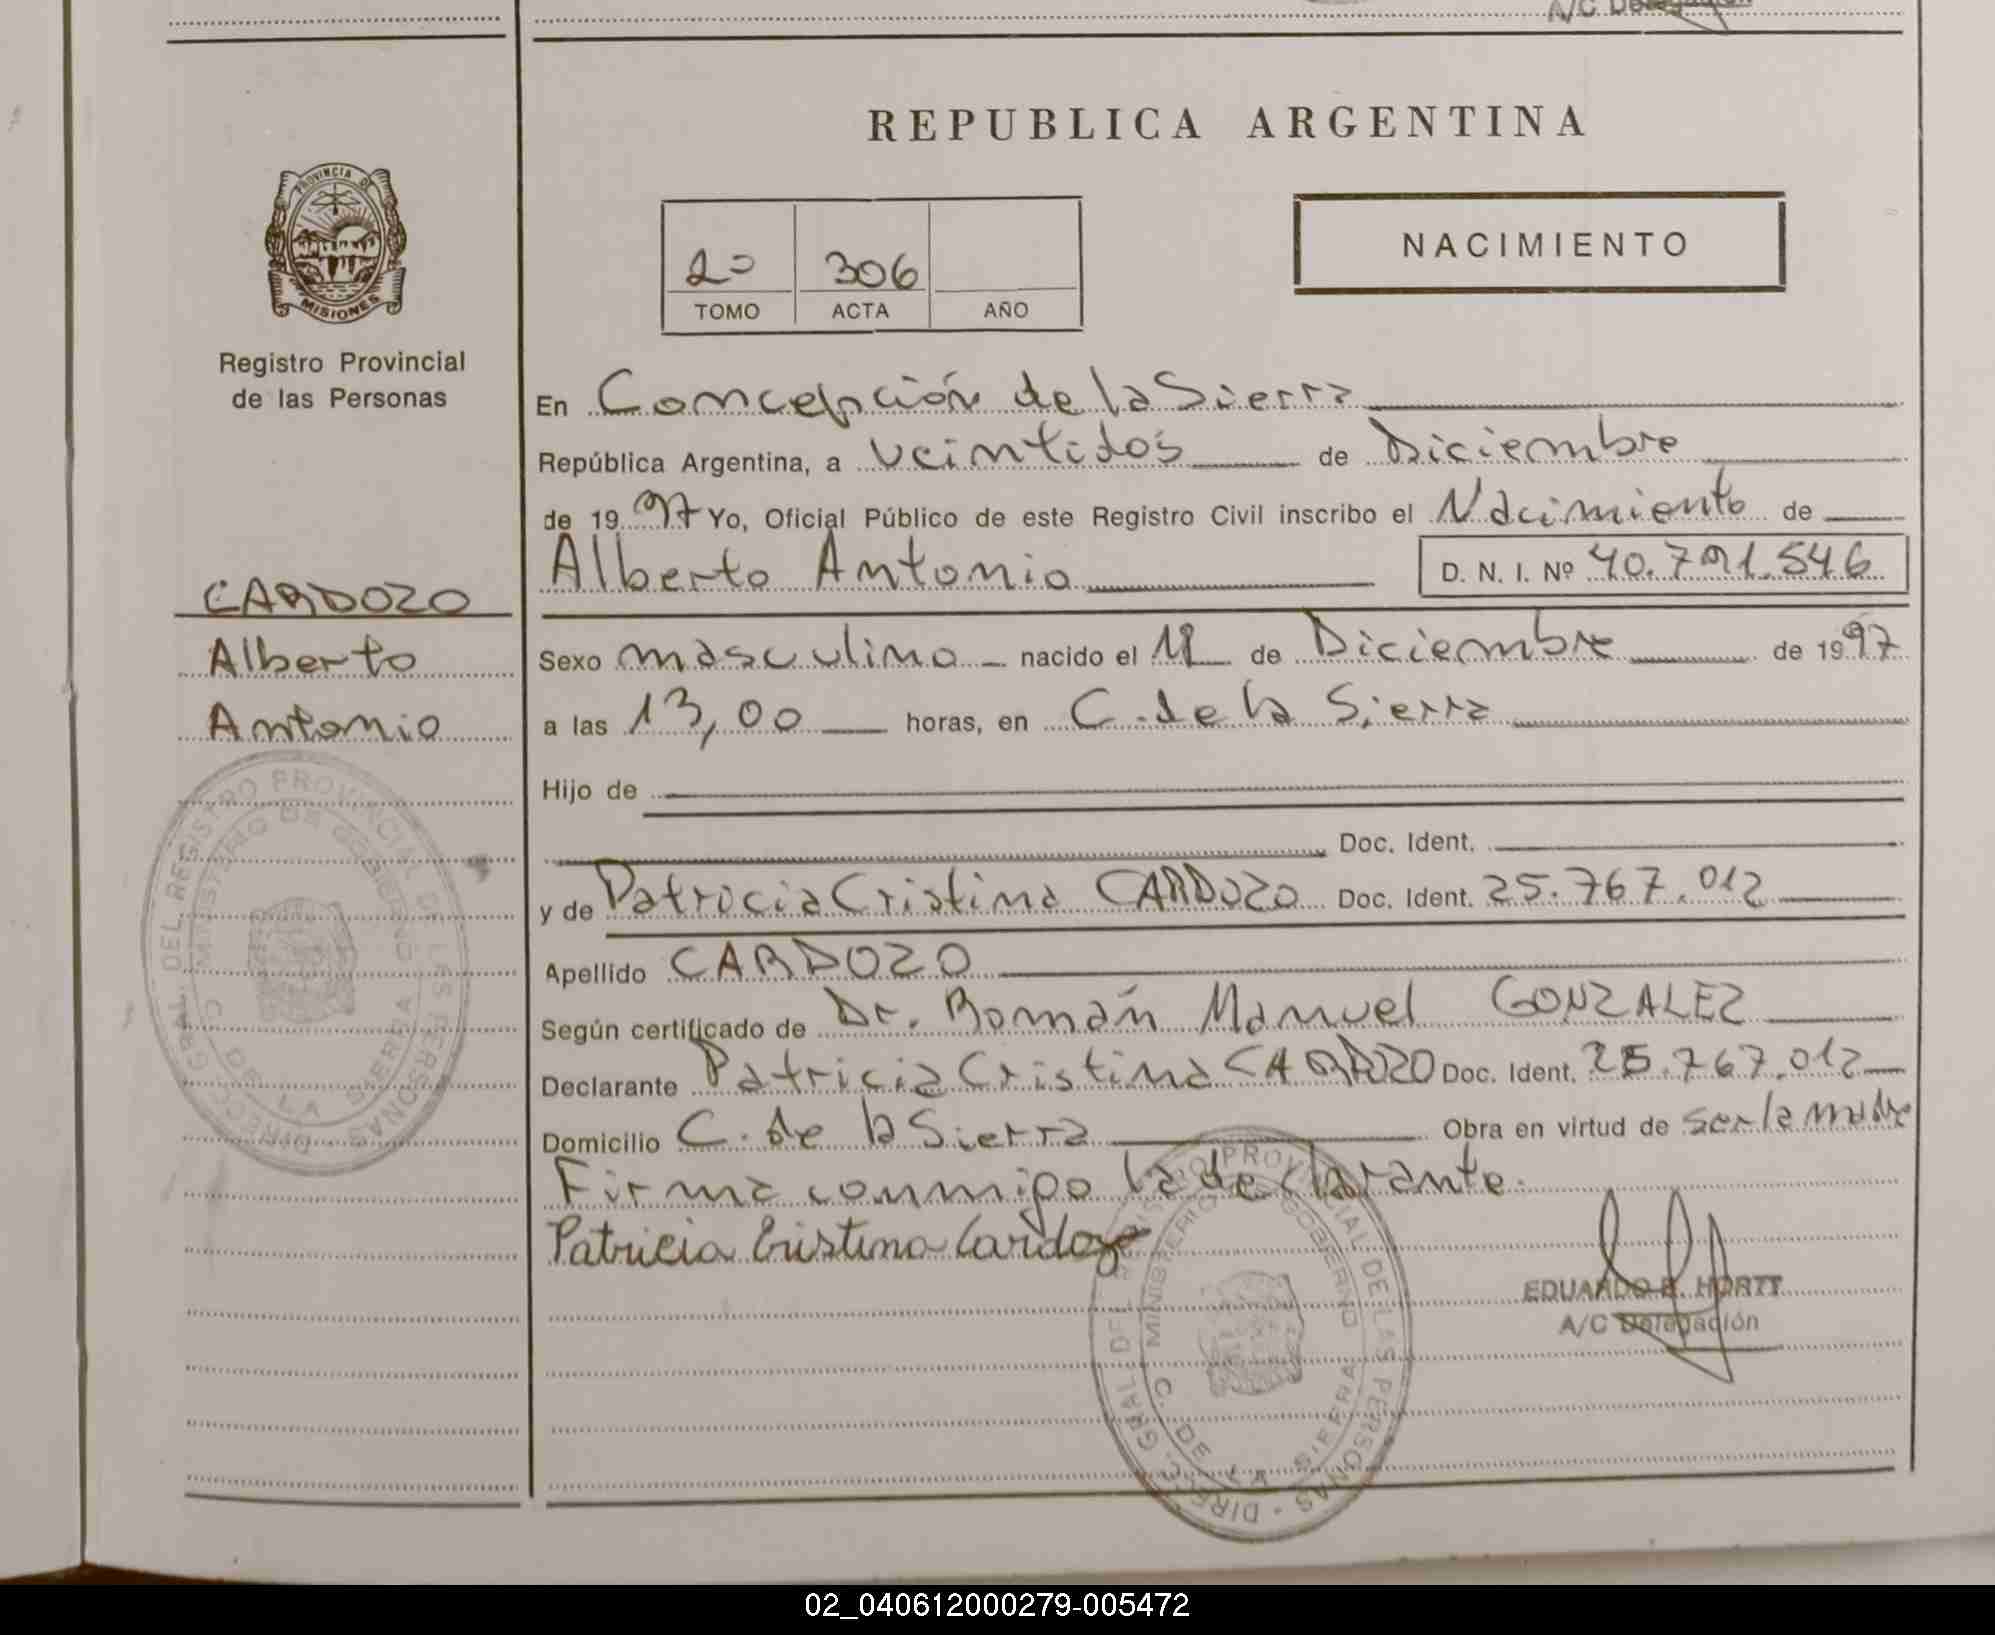 A/C Delegación
REPUBLICA ARGENTINA
PROVINCIA DE
MISIONES
Registro Provincial
de las Personas
2º 306
TOMO ACTA AÑO
NACIMIENTO
En Concepción de la Sierra
República Argentina, a veintidós de Diciembre
de 1997 Yo, Oficial Público de este Registro Civil inscribo el Nacimiento de
Alberto Antonio D. N. I. Nº 40.791.546
CARDOZO
Alberto
Antonio
Sexo masculino nacido el de Diciembre de 1997
a las 13,00 horas, en C. de la Sierra
Hijo de
Doc. Ident.
y de Patricia Cristina CARDOZO Doc. Ident. 25.767.012
Apellido CARDOZO
Según certificado de Dr. Román Manuel GONZALEZ
Declarante Patricia Cristina CARDOZO Doc. Ident. 25.767.012
Domicilio C. de la Sierra Obra en virtud de ser la madre
Firma conmigo la declarante.
Patricia Cristina Cardozo
EDUARDO R. HORTT
A/C Delegación
DIRECC. GRAL. DEL REGISTRO PROVINCIAL DE LAS PERSONAS
MINISTERIO DE GOBIERNO
C. DE LA SIERRA
DIRECC. GRAL. DEL REGISTRO PROVINCIAL DE LAS PERSONAS
MINISTERIO DE GOBIERNO
C. DE LA SIERRA
02_040612000279-005472